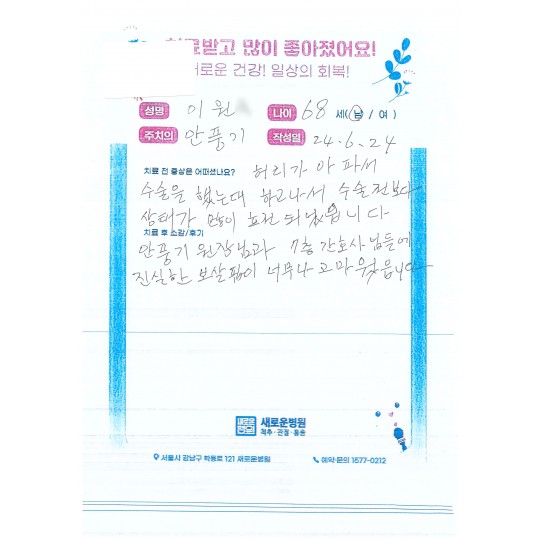 치료받고 많이 좋아졌어요!
새로운 건강! 일상의 회복!
성명 이원 나이 68 세(남 / 여)
주치의 안풍기 작성일 24.6.24
치료 전 증상은 어떠셨나요? 허리가 아파서
수술을 했는데 하고나서 수술전보다
상태가 많이 호전 되었읍니다
치료 후 소감/후기
안풍기 원장님과 7층 간호사님들에
진실한 보살핌이 너무나 고마웠읍니다
새로운병원
척추·관절·통증
서울시 강남구 학동로 121 새로운병원 예약·문의 1577-0212